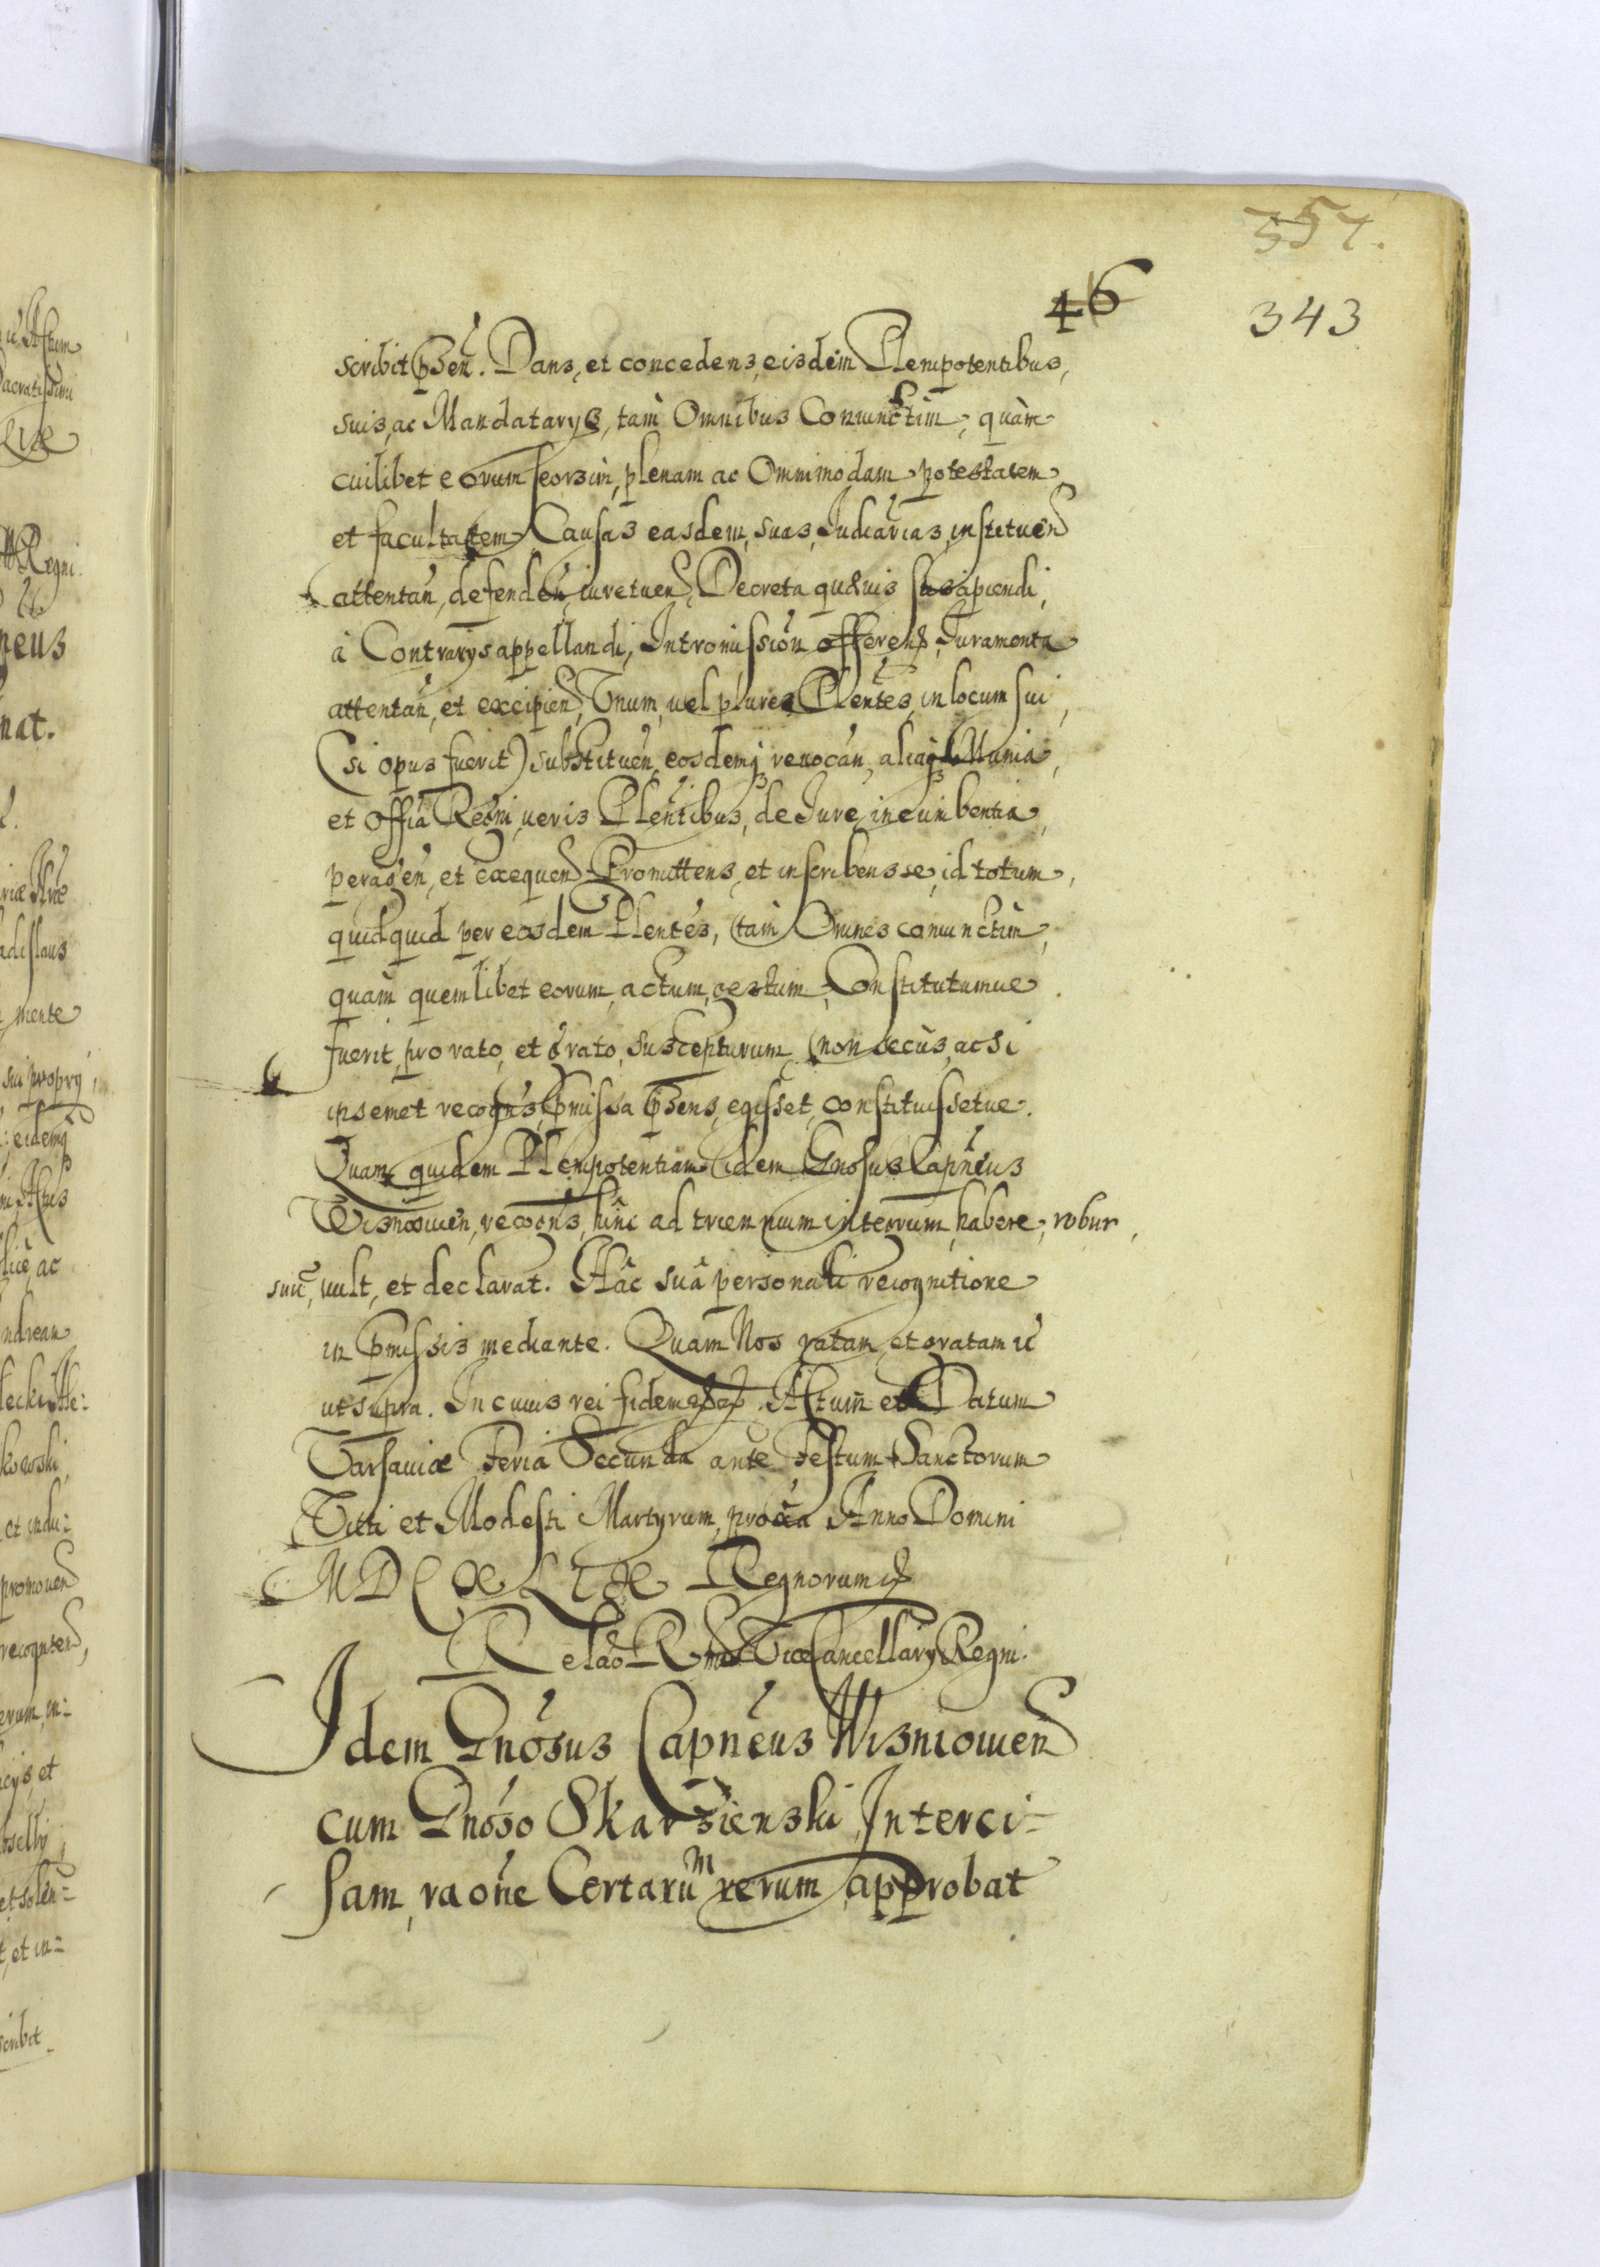 357.
46
343
scribit p̃sen̄. Dans, et concedens, eisdem Plenipotentibus,
suis, ac Mandatarys, tam̀ Omnibus Coniunctim, quàm
cuilibet eorum seorsim, plenam ac Omnimodam potestatem
et facultatem Causas easdem, suas, Judiciarias, instituen̄
attentan̄, defenden̄, iuretuen̄, Decreta quævis suscipiendi,
à Contrarys appellandi, Intromission̄ offeren̄, Juramenta
attentan̄, et excipien̄, Vnum, uel plures Plen̄tes, in locum sui,
(si opus fuerit) substituen̄, eosdemq; reuocan̄, aliaq; Munia,
et Offia Regni, ueris Plen̄tibus, de Jure incumbentia,
peragen̄, et exequen̄ Promittens, et inscribens se, id totum,
quidquid per eosdem Plen̄tes, tam̀ Omnes coniunctim,
quàm quemlibet eorum, actum, gestum, Constitutumue
fuerit, pro rato, et grato, suscepturum, non secùs, ac si
ipsemet recogn̄s, p̃missa p̃sens, egisset, constituissetue.
Quam quidem Plenipotentiam idem Gnosus Capn̄eus
Wisnouien̄, recogn̄s, hinc ad triennium integrum, habere, robur,
suū, uult, et declarat. Hâc suâ personali recognitione
in p̃missis mediante. Quam Nos ratam, et gratam ū
ut supra. In cuius rei fidem ꝛꝛ. Actum̄ et Datum
Varsauiæ Feria Secunda ante Festum Sanctorum
Viti et Modesti Martyrum, proxa Anno Domini
MDCXLIX Regnorum ꝛ
Relao R̄md Vice Cancellary Regni.
Idem Gnosus Capn̄eus Wisniouien̄
cum Gnoso Skarzienski Interci-
sam, raone Certarūm rerum, approbat